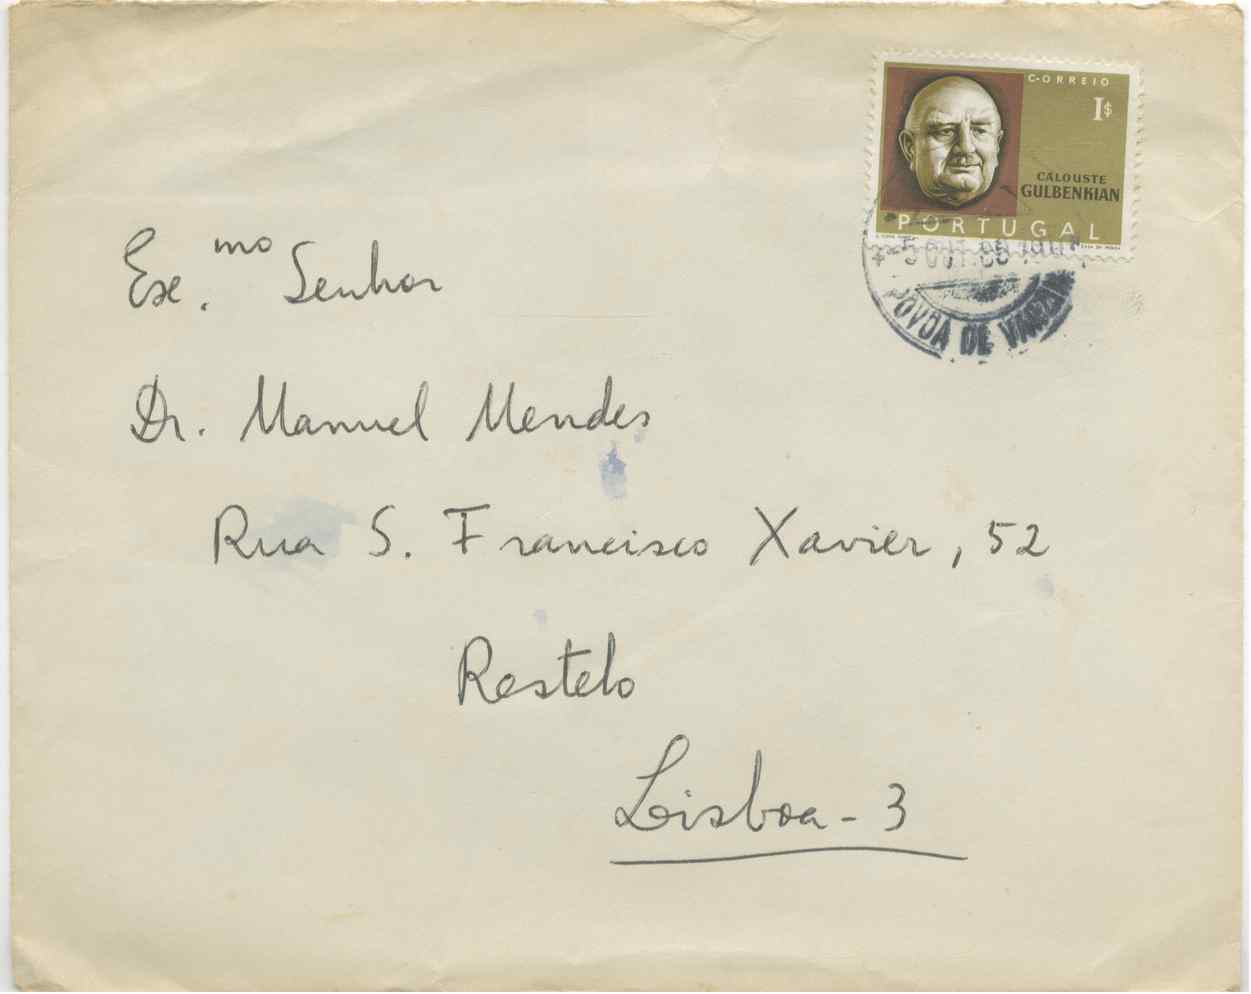 CORREIO
1$
CALOUSTE
GULBENKIAN
PORTUGAL
PÓVOA DE VARZIM
Exc.mo Senhor
Dr. Manuel Mendes
Rua S. Francisco Xavier, 52
Restelo
Lisboa - 3